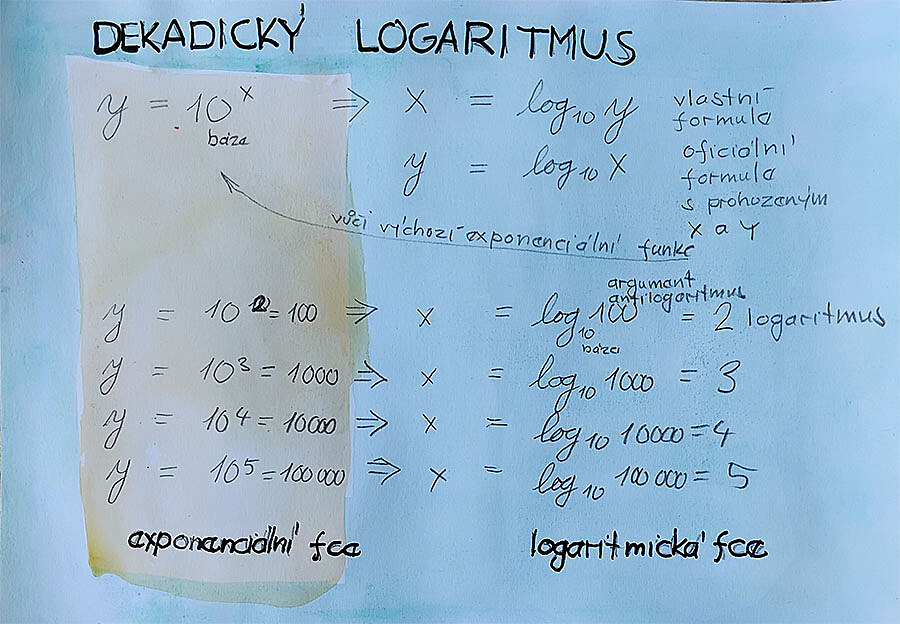 DEKADICKÝ LOGARITMUS
y = 10^x ⇒ x = log₁₀ y vlastní
formula
báza
y = log₁₀ x oficiální
formula
s prohozeným
x a y
vůči výchozí exponenciální funkc
argumant
antilogaritmus
y = 10² = 100 ⇒ x = log₁₀ 100 = 2 logaritmus
báza
y = 10³ = 1000 ⇒ x = log₁₀ 1000 = 3
y = 10⁴ = 10000 ⇒ x = log₁₀ 10000 = 4
y = 10⁵ = 100 000 ⇒ x = log₁₀ 100 000 = 5
exponenciální fce logaritmická fce